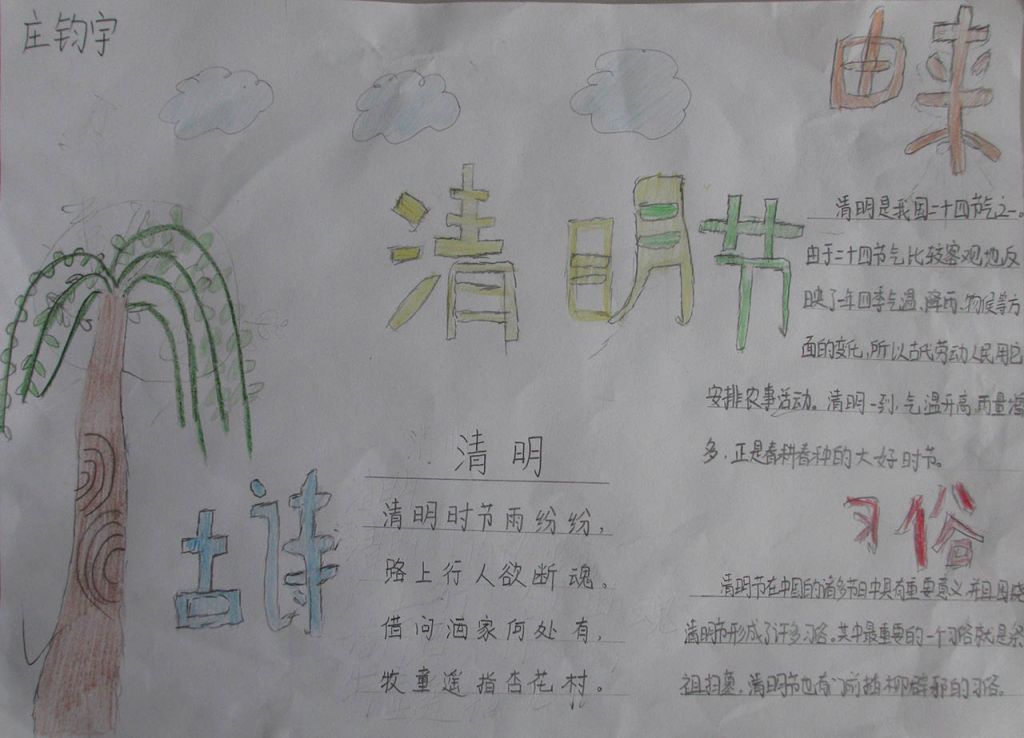 庄钧宇
由来
清明节
清明是我国二十四节气之一。
由于二十四节气比较客观地反
映了一年四季气温、降雨、物候等方
面的变化，所以古代劳动人民用它
安排农事活动。清明一到，气温升高，雨量增
多，正是春耕春种的大好时节。
古诗
清明
清明时节雨纷纷，
路上行人欲断魂。
借问酒家何处有，
牧童遥指杏花村。
习俗
清明节在中国的诸多节日中具有重要意义，并且围绕
清明节形成了许多习俗。其中最重要的一个习俗就是祭
祖扫墓，清明节也有门前插柳辟邪的习俗。